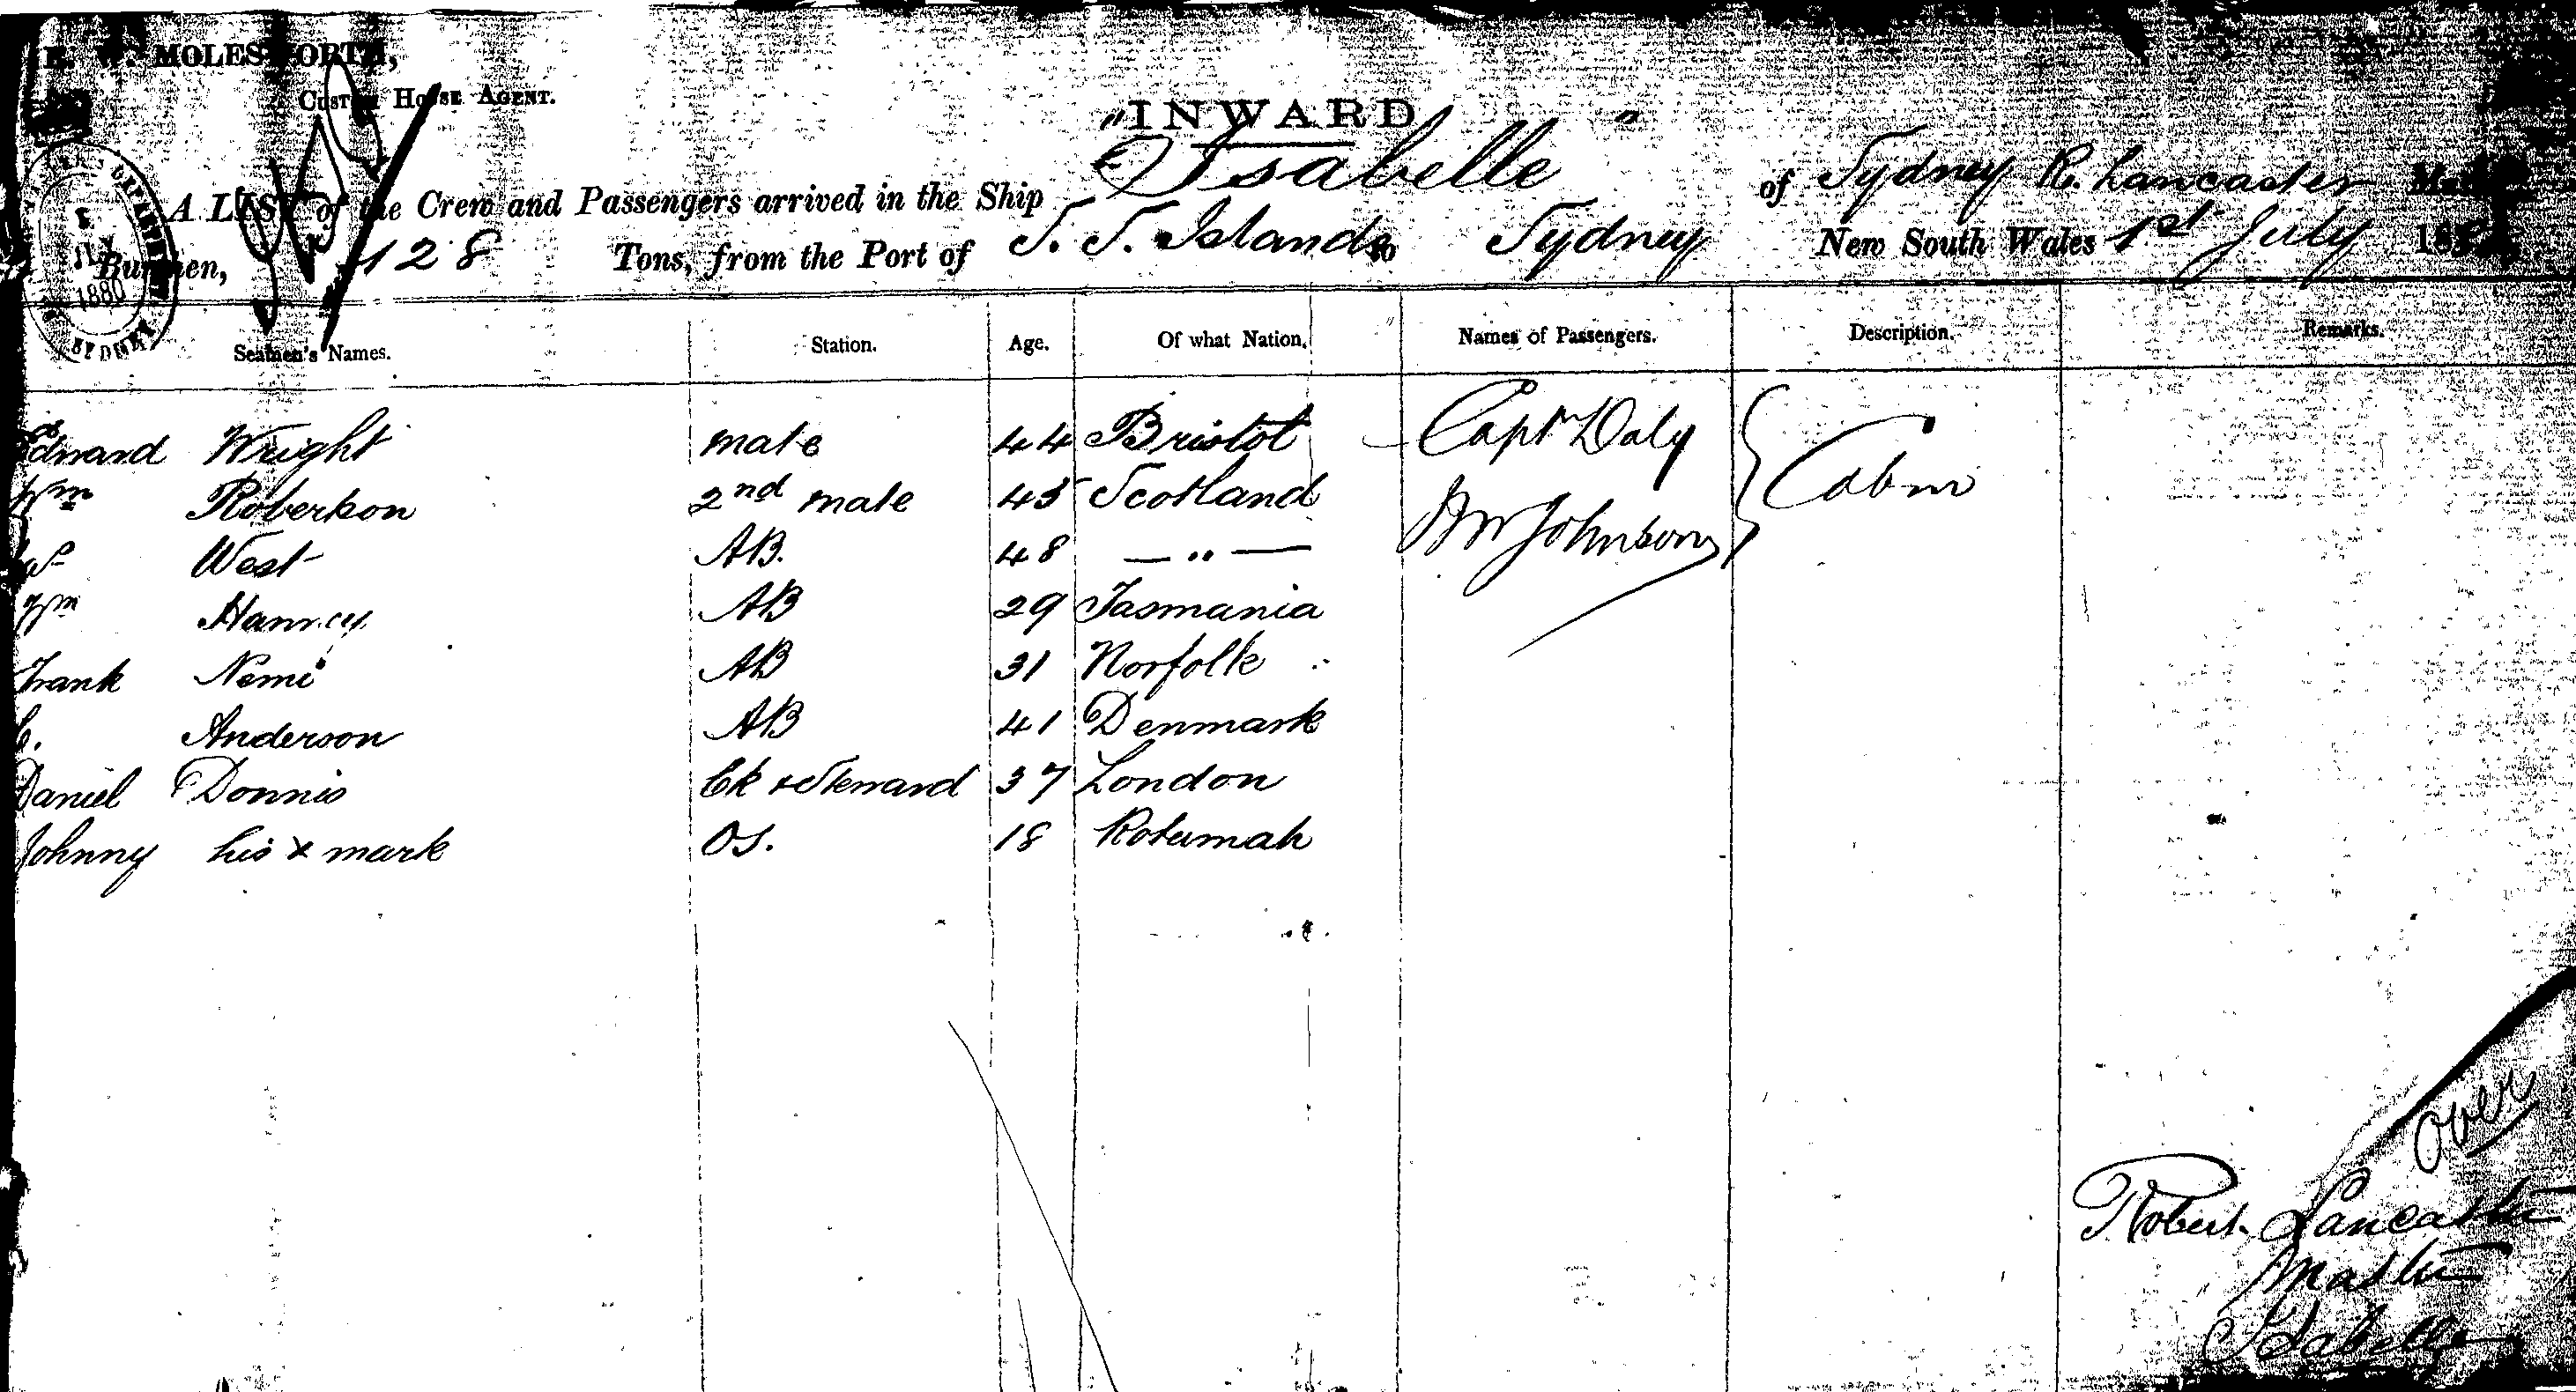 E. W. MOLESWORTH,
CUSTOM HOUSE AGENT.
INWARD
A LIST of the Crew and Passengers arrived in the Ship "Isabelle" of Sydney R. Lancaster Master
Burthen, 128 Tons, from the Port of S. S. Islands to Sydney New South Wales 1st July 1880
1880
SYDNEY
Seamen's Names. Station. Age. Of what Nation. Names of Passengers. Description. Remarks.
Edward Wright mate 44 Bristol Capt Daly Cabin
Wm Robertson 2nd mate 45 Scotland Johnson
West AB. 48 — „ —
Wm AB 29 Tasmania
Frank Nemi AB 31 Norfolk
C. Anderson AB 41 Denmark
Daniel Donnis Ck & Steward 37 London
Johnny his x mark OS. 18 Rotumah
Over
Robert Lancaster
Master
Isabelle